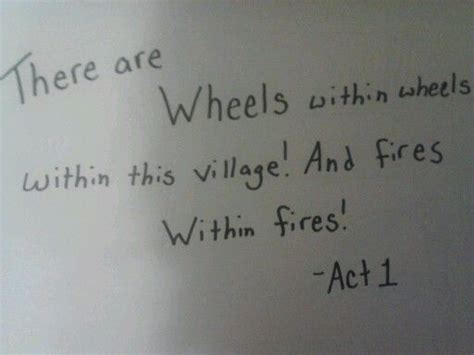 There are
Wheels within wheels
within this village! And fires
Within fires!
-Act 1